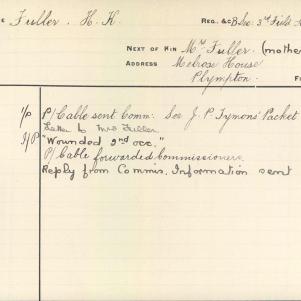 E Fuller. H. K. REG. &C B Sec. 3rd Field
NEXT OF KIN Mrs Fuller. (mother
ADDRESS Melrose House
Plympton.
P/Cable sent Comm: See J. P. Tymons' Packet
Letter to Mrs Fuller
"Wounded 2nd occ."
P/Cable forwarded Commissioners
Reply from Commis. Information sent